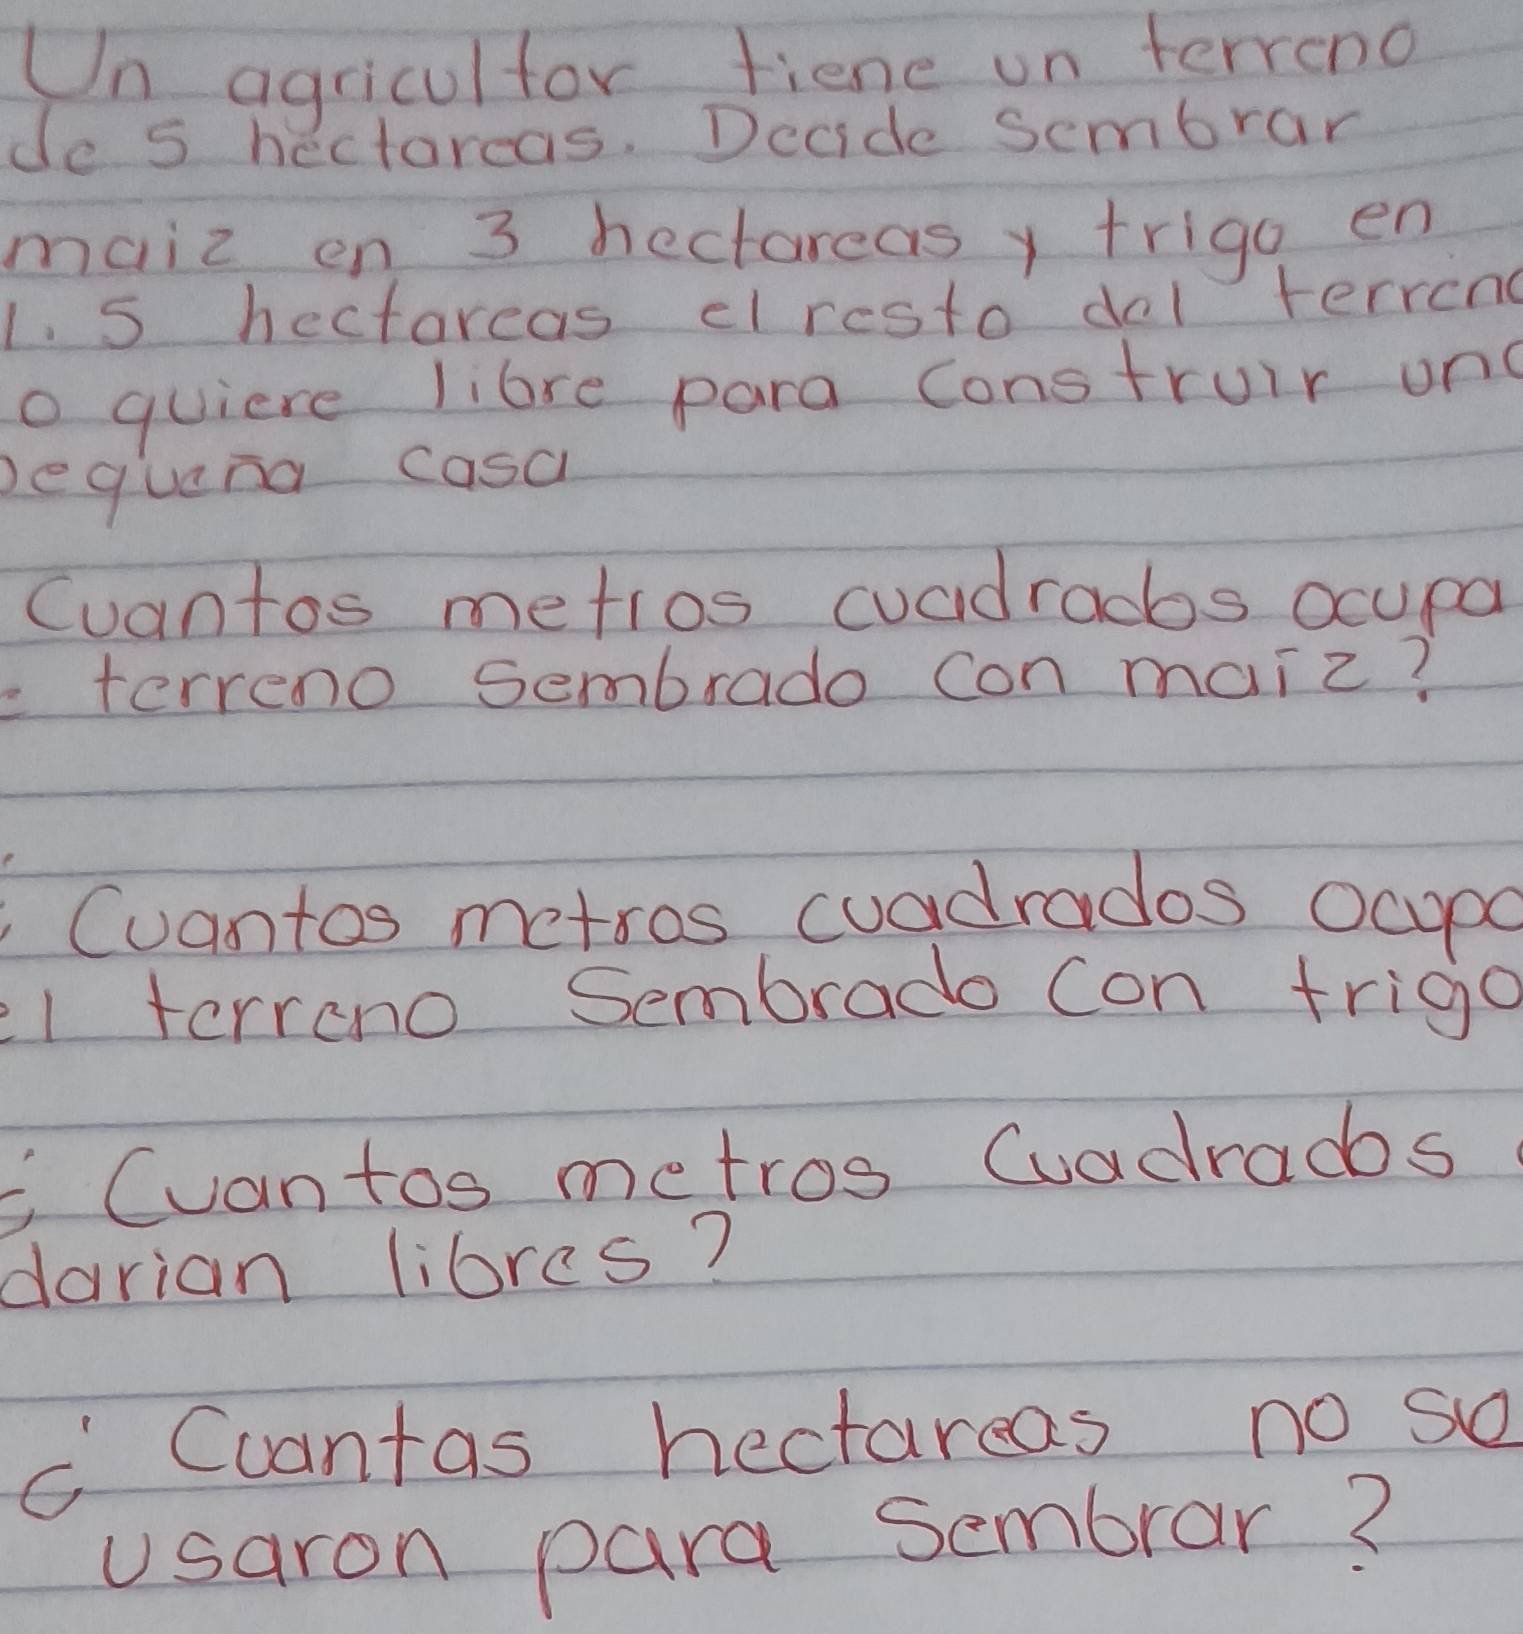 Un agricultor tiene un terreno
de 5 hectareas. Decide sembrar
maiz en 3 hectareas y trigo en
1.5 hectareas el resto del terreno
o quiere libre para construir una
pequeña casa
Cuantos metros cuadrados ocupa
e terreno sembrado con maiz?
¿Cuantos metros cuadrados ocupa
el terreno Sembrado con trigo
¿Cuantos metros Cuadrados
darian libres?
¿Cuantas hectareas no se
usaron para sembrar?